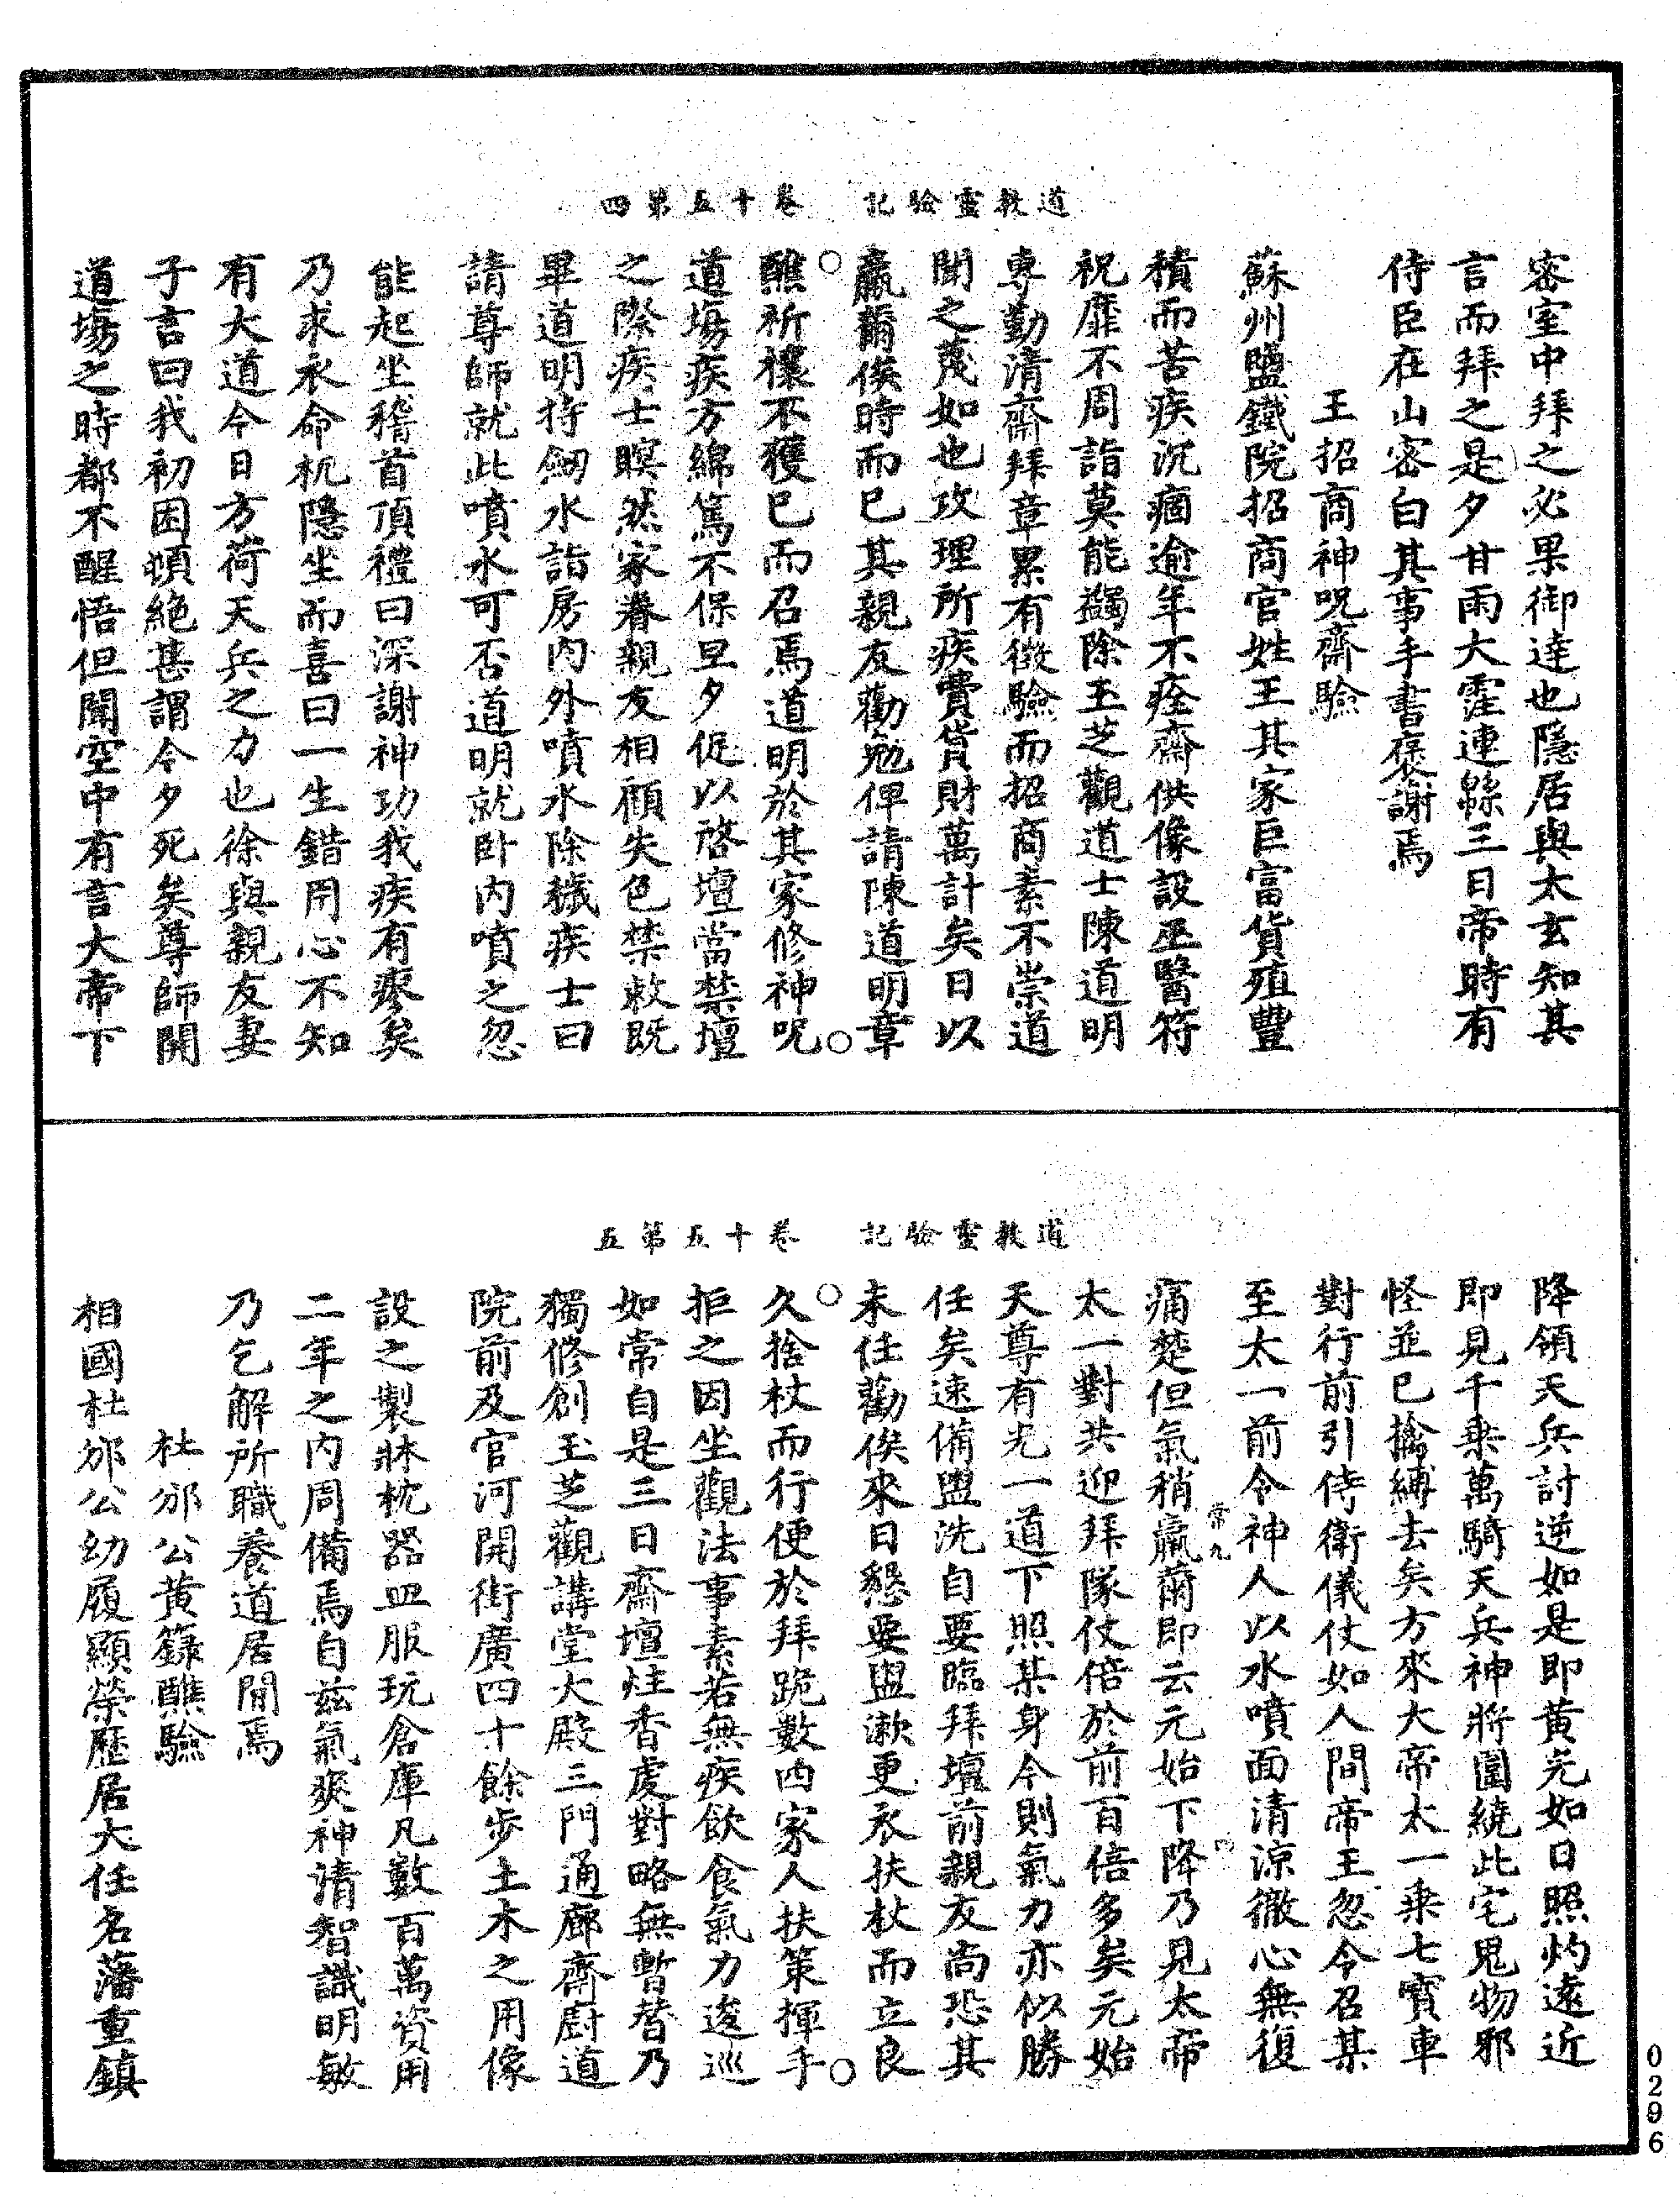 道教靈驗記　卷十五第四
密室中拜之必果御達也隱居與太玄知其
言而拜之是夕甘雨大霔連緜三日帝時有
侍臣在山密白其事手書褒謝焉
王招商神呪齋驗
蘇州鹽鐵院招商官姓王其家巨富貨殖豐
積而苦疾沉痼逾年不痊齋供像設巫醫符
祝靡不周詣莫能蠲除玉芝觀道士陳道明
專勤清齋拜章累有徵驗而招商素不崇道
聞之蔑如也攻理所疾費貨財萬計矣日以
羸薾俟時而已其親友勸勉俾請陳道明章
醮祈禳不獲已而召焉道明於其家修神呪
道場疾方綿篤不保旦夕促以啓壇當禁壇
之際疾士瞑然家眷親友相顧失色禁敕既
畢道明持劒水詣房內外噴水除穢疾士曰
請尊師就此噴水可否道明就卧内噴之忽
能起坐稽首頂禮曰深謝神功我疾有瘳矣
乃求衣命杌隱坐而喜曰一生錯用心不知
有大道今日方荷天兵之力也徐與親友妻
子言曰我初困頓絕甚謂今夕死矣尊師開
道場之時都不醒悟但聞空中有言大帝下
道教靈驗記　卷十五第五
降領天兵討逆如是即黄光如日照灼遠近
即見千乘萬騎天兵神將圍繞此宅鬼物邪
怪並已擒縛去矣方來大帝太一乘七寶車
對行前引侍衛儀仗如人間帝王忽令召某
至太一前令神人以水噴面清涼徹心無復
常九
痛楚但氣稍羸薾即云元始下降乃見太帝
太一對共迎拜隊仗倍於前百倍多矣元始
天尊有光一道下照某身今則氣力亦似勝
任矣速備盥洗自要臨拜壇前親友尚恐其
未任勸俟來日懇要盥漱更衣扶杖而立良
久捨杖而行便於拜跪數四家人扶策揮手
拒之因坐觀法事素若無疾飲食氣力逡巡
如常自是三日齋壇炷香處對略無暫替乃
獨修創玉芝觀講堂大殿三門通廊齋廚道
院前及官河開街廣四十餘步土木之用像
設之製牀枕器皿服玩倉庫凡數百萬資用
二年之内周備焉自兹氣爽神清智識明敏
乃乞解所職養道居閒焉
杜邠公黄籙醮驗
相國杜邠公幼履顯榮歷居大任名藩重鎮
0296